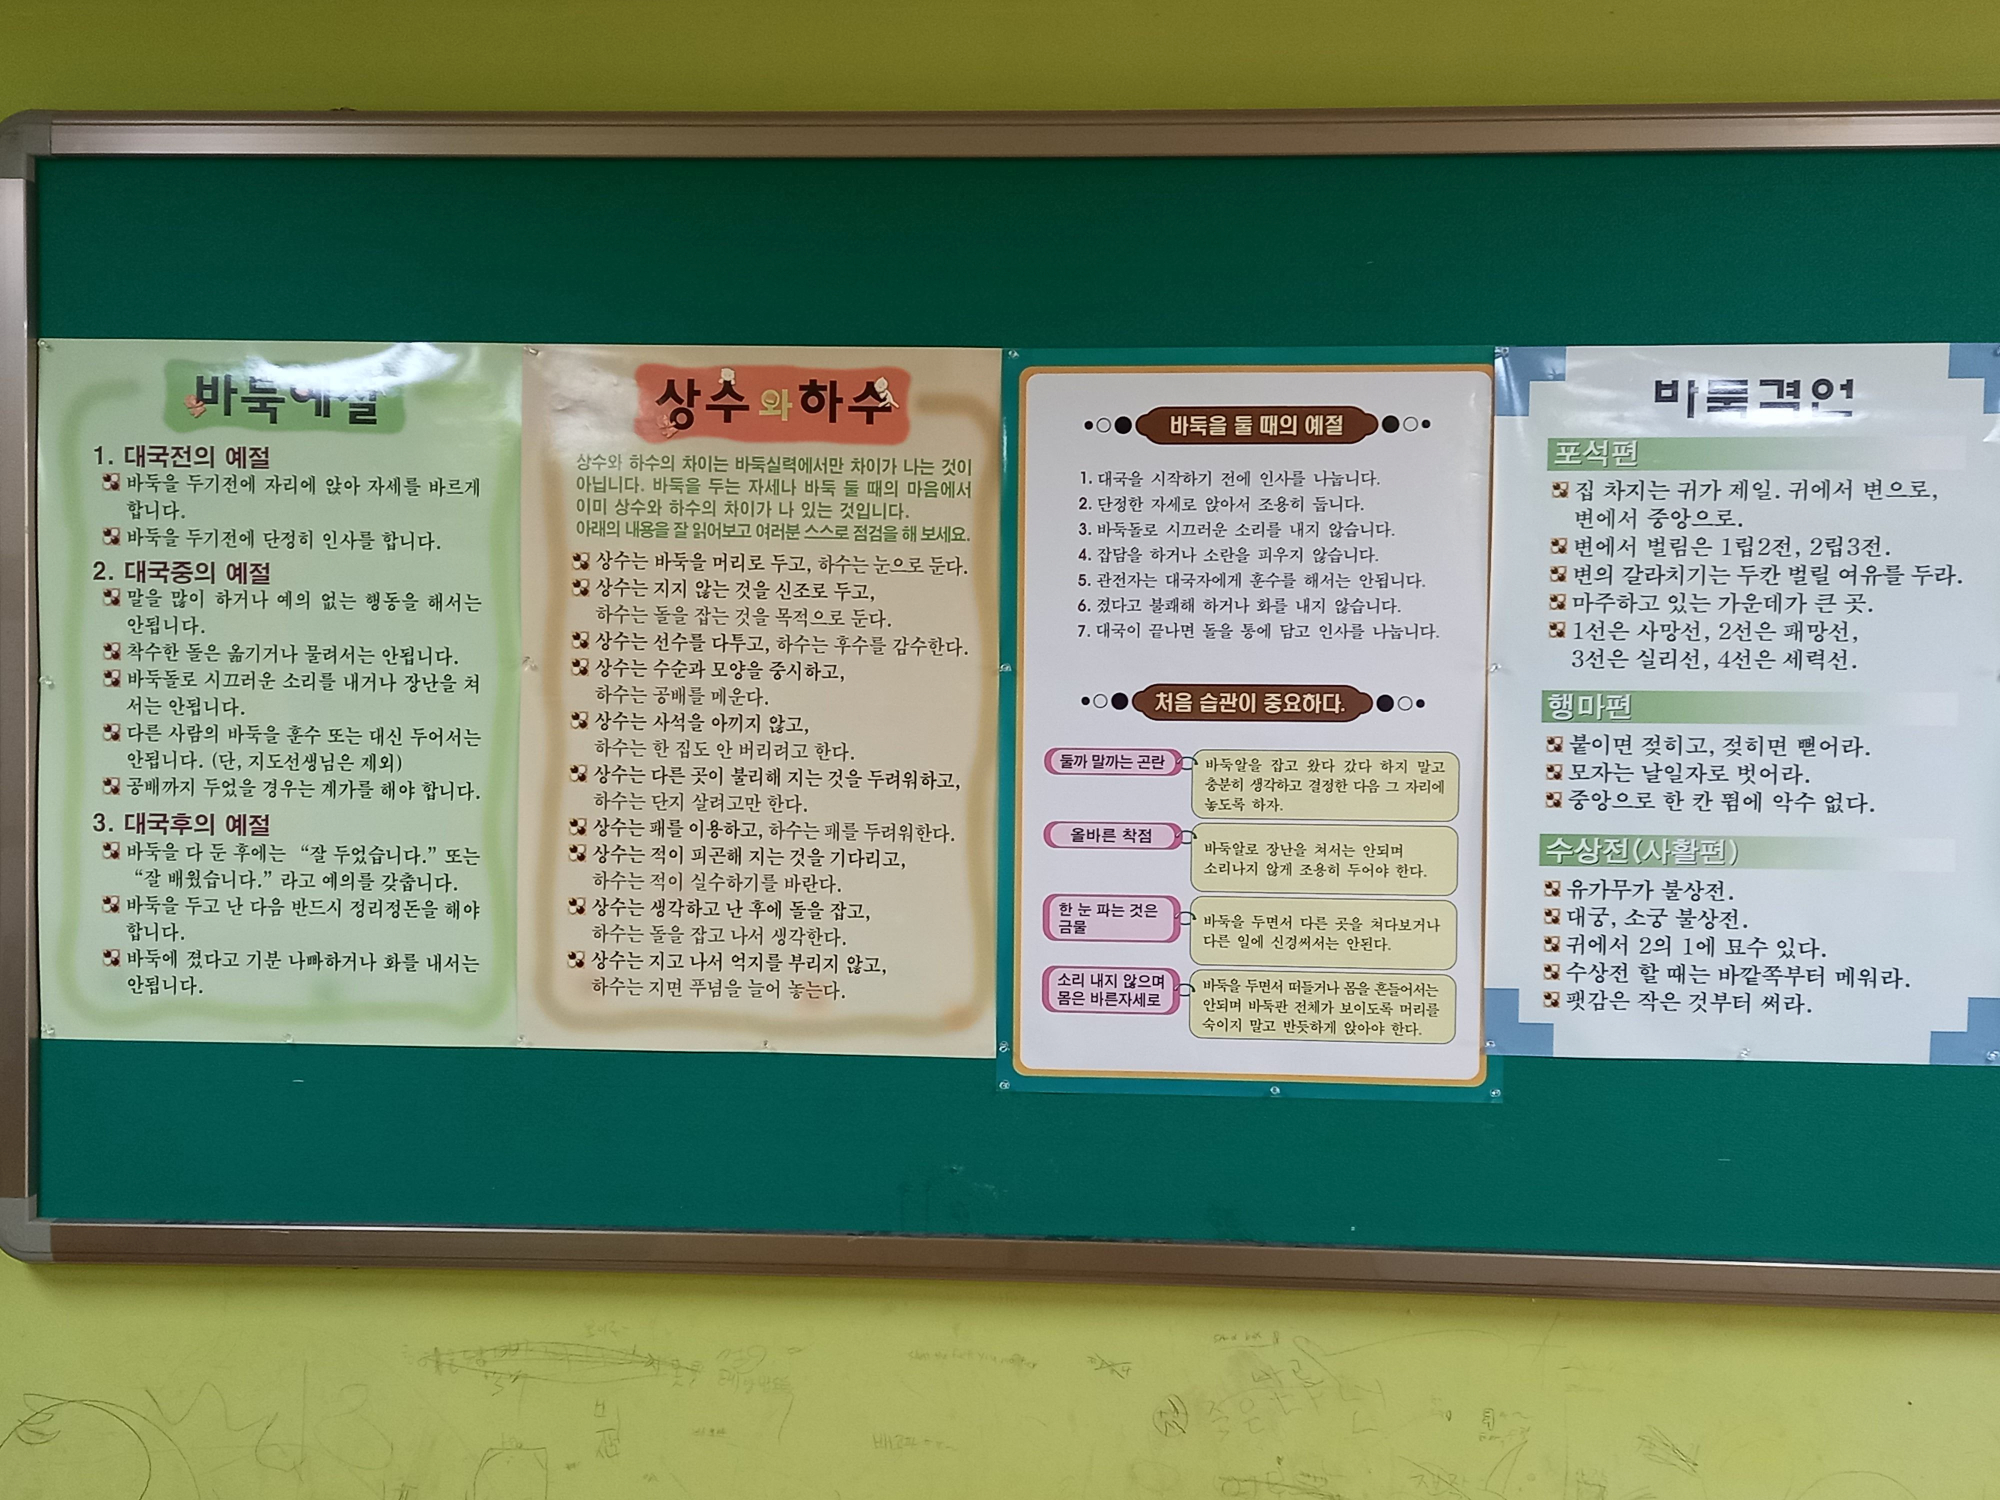 바둑예절
1. 대국전의 예절
바둑을 두기전에 자리에 앉아 자세를 바르게
합니다.
바둑을 두기전에 단정히 인사를 합니다.
2. 대국중의 예절
말을 많이 하거나 예의 없는 행동을 해서는
안됩니다.
착수한 돌은 옮기거나 물려서는 안됩니다.
바둑돌로 시끄러운 소리를 내거나 장난을 쳐
서는 안됩니다.
다른 사람의 바둑을 훈수 또는 대신 두어서는
안됩니다. (단, 지도선생님은 제외)
공배까지 두었을 경우는 계가를 해야 합니다.
3. 대국후의 예절
바둑을 다 둔 후에는 “잘 두었습니다.” 또는
“잘 배웠습니다.” 라고 예의를 갖춥니다.
바둑을 두고 난 다음 반드시 정리정돈을 해야
합니다.
바둑에 졌다고 기분 나빠하거나 화를 내서는
안됩니다.
상수와하수
상수와 하수의 차이는 바둑실력에서만 차이가 나는 것이
아닙니다. 바둑을 두는 자세나 바둑 둘 때의 마음에서
이미 상수와 하수의 차이가 나 있는 것입니다.
아래의 내용을 잘 읽어보고 여러분 스스로 점검을 해 보세요.
상수는 바둑을 머리로 두고, 하수는 눈으로 둔다.
상수는 지지 않는 것을 신조로 두고,
하수는 돌을 잡는 것을 목적으로 둔다.
상수는 선수를 다투고, 하수는 후수를 감수한다.
상수는 수순과 모양을 중시하고,
하수는 공배를 메운다.
상수는 사석을 아끼지 않고,
하수는 한 집도 안 버리려고 한다.
상수는 다른 곳이 불리해 지는 것을 두려워하고,
하수는 단지 살려고만 한다.
상수는 패를 이용하고, 하수는 패를 두려워한다.
상수는 적이 피곤해 지는 것을 기다리고,
하수는 적이 실수하기를 바란다.
상수는 생각하고 난 후에 돌을 잡고,
하수는 돌을 잡고 나서 생각한다.
상수는 지고 나서 억지를 부리지 않고,
하수는 지면 푸념을 늘어 놓는다.
바둑을 둘 때의 예절
1. 대국을 시작하기 전에 인사를 나눕니다.
2. 단정한 자세로 앉아서 조용히 둡니다.
3. 바둑돌로 시끄러운 소리를 내지 않습니다.
4. 잡담을 하거나 소란을 피우지 않습니다.
5. 관전자는 대국자에게 훈수를 해서는 안됩니다.
6. 졌다고 불쾌해 하거나 화를 내지 않습니다.
7. 대국이 끝나면 돌을 통에 담고 인사를 나눕니다.
처음 습관이 중요하다.
둘까 말까는 곤란
바둑알을 잡고 왔다 갔다 하지 말고
충분히 생각하고 결정한 다음 그 자리에
놓도록 하자.
올바른 착점
바둑알로 장난을 쳐서는 안되며
소리나지 않게 조용히 두어야 한다.
한 눈 파는 것은
금물
바둑을 두면서 다른 곳을 쳐다보거나
다른 일에 신경써서는 안된다.
소리 내지 않으며
몸은 바른자세로
바둑을 두면서 떠들거나 몸을 흔들어서는
안되며 바둑판 전체가 보이도록 머리를
숙이지 말고 반듯하게 앉아야 한다.
바둑격언
포석편
집 차지는 귀가 제일. 귀에서 변으로,
변에서 중앙으로.
변에서 벌림은 1립2전, 2립3전.
변의 갈라치기는 두칸 벌릴 여유를 두라.
마주하고 있는 가운데가 큰 곳.
1선은 사망선, 2선은 패망선,
3선은 실리선, 4선은 세력선.
행마편
붙이면 젖히고, 젖히면 뻗어라.
모자는 날일자로 벗어라.
중앙으로 한 칸 뜀에 악수 없다.
수상전(사활편)
유가무가 불상전.
대궁, 소궁 불상전.
귀에서 2의 1에 묘수 있다.
수상전 할 때는 바깥쪽부터 메워라.
팻감은 작은 것부터 써라.